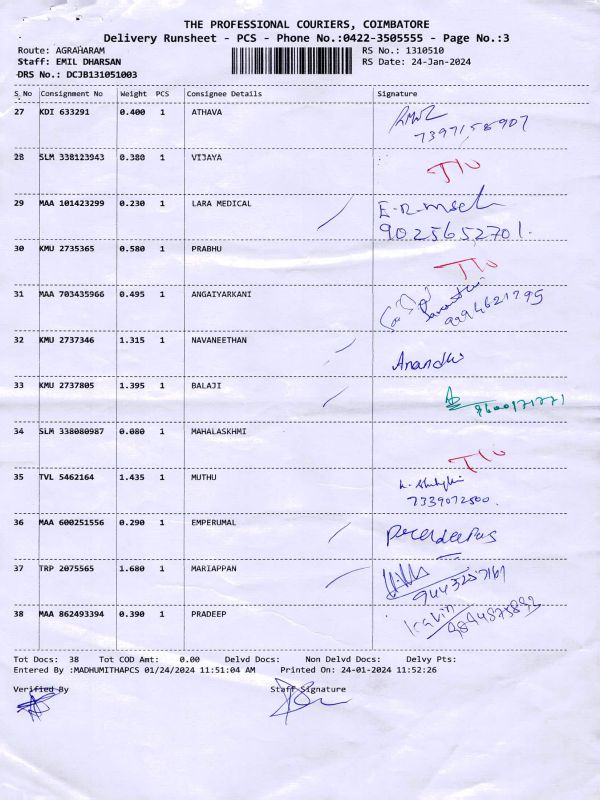 THE PROFESSIONAL COURIERS, COIMBATORE
Delivery Runsheet - PCS - Phone No.:0422-3505555 - Page No.:3
Route: AGRAHARAM RS No.: 1310510
Staff: EMIL DHARSAN RS Date: 24-Jan-2024
DRS No.: DCJB131051003
S No Consignment No Weight PCS Consignee Details Signature
27 KDI 633291 0.400 1 ATHAVA
7397158907
28 SLM 338123943 0.380 1 VIJAYA
29 MAA 101423299 0.230 1 LARA MEDICAL
9025652701.
30 KMU 2735365 0.580 1 PRABHU
31 MAA 703435966 0.495 1 ANGAIYARKANI
9994621795
32 KMU 2737346 1.315 1 NAVANEETHAN
33 KMU 2737805 1.395 1 BALAJI
9600171771
34 SLM 338080987 0.080 1 MAHALASKHMI
35 TVL 5462164 1.435 1 MUTHU
7339072500.
36 MAA 600251556 0.290 1 EMPERUMAL
37 TRP 2075565 1.680 1 MARIAPPAN
9443257161
38 MAA 862493394 0.390 1 PRADEEP
Kavin
Tot Docs: 38 Tot COD Amt: 0.00 Delvd Docs: Non Delvd Docs: Delvy Pts:
Entered By :MADHUMITHAPCS 01/24/2024 11:51:04 AM Printed On: 24-01-2024 11:52:26
Verified By Staff Signature